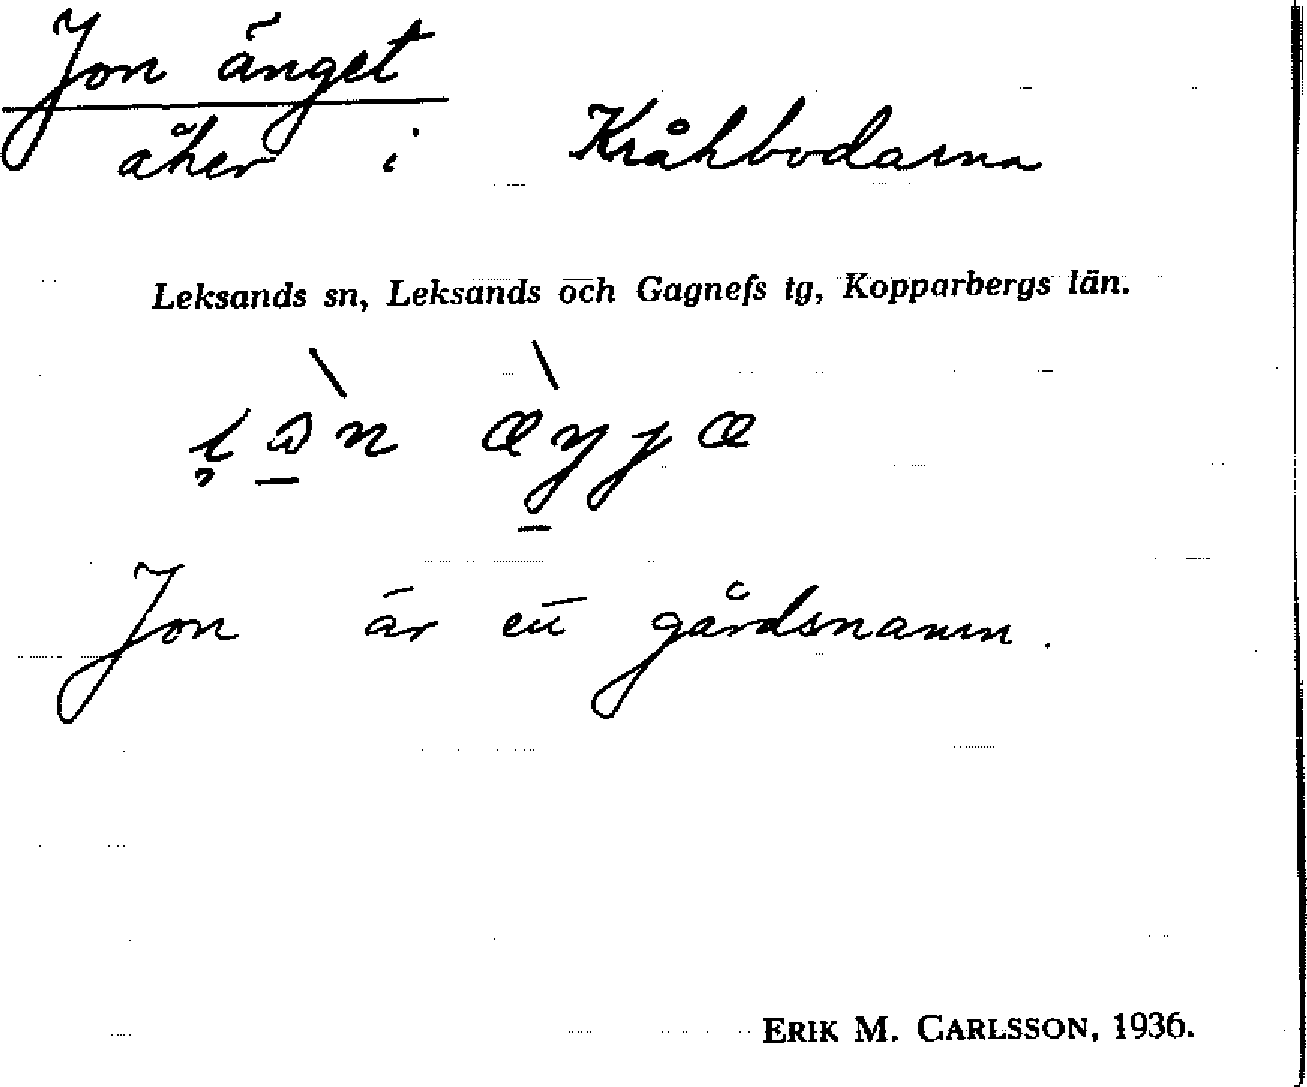 Jon änget
åker i Kråkbodarna
Leksands sn, Leksands och Gagnefs tg, Kopparbergs län.
Jon är ett gårdsnamn.
ERIK M. CARLSSON, 1936.